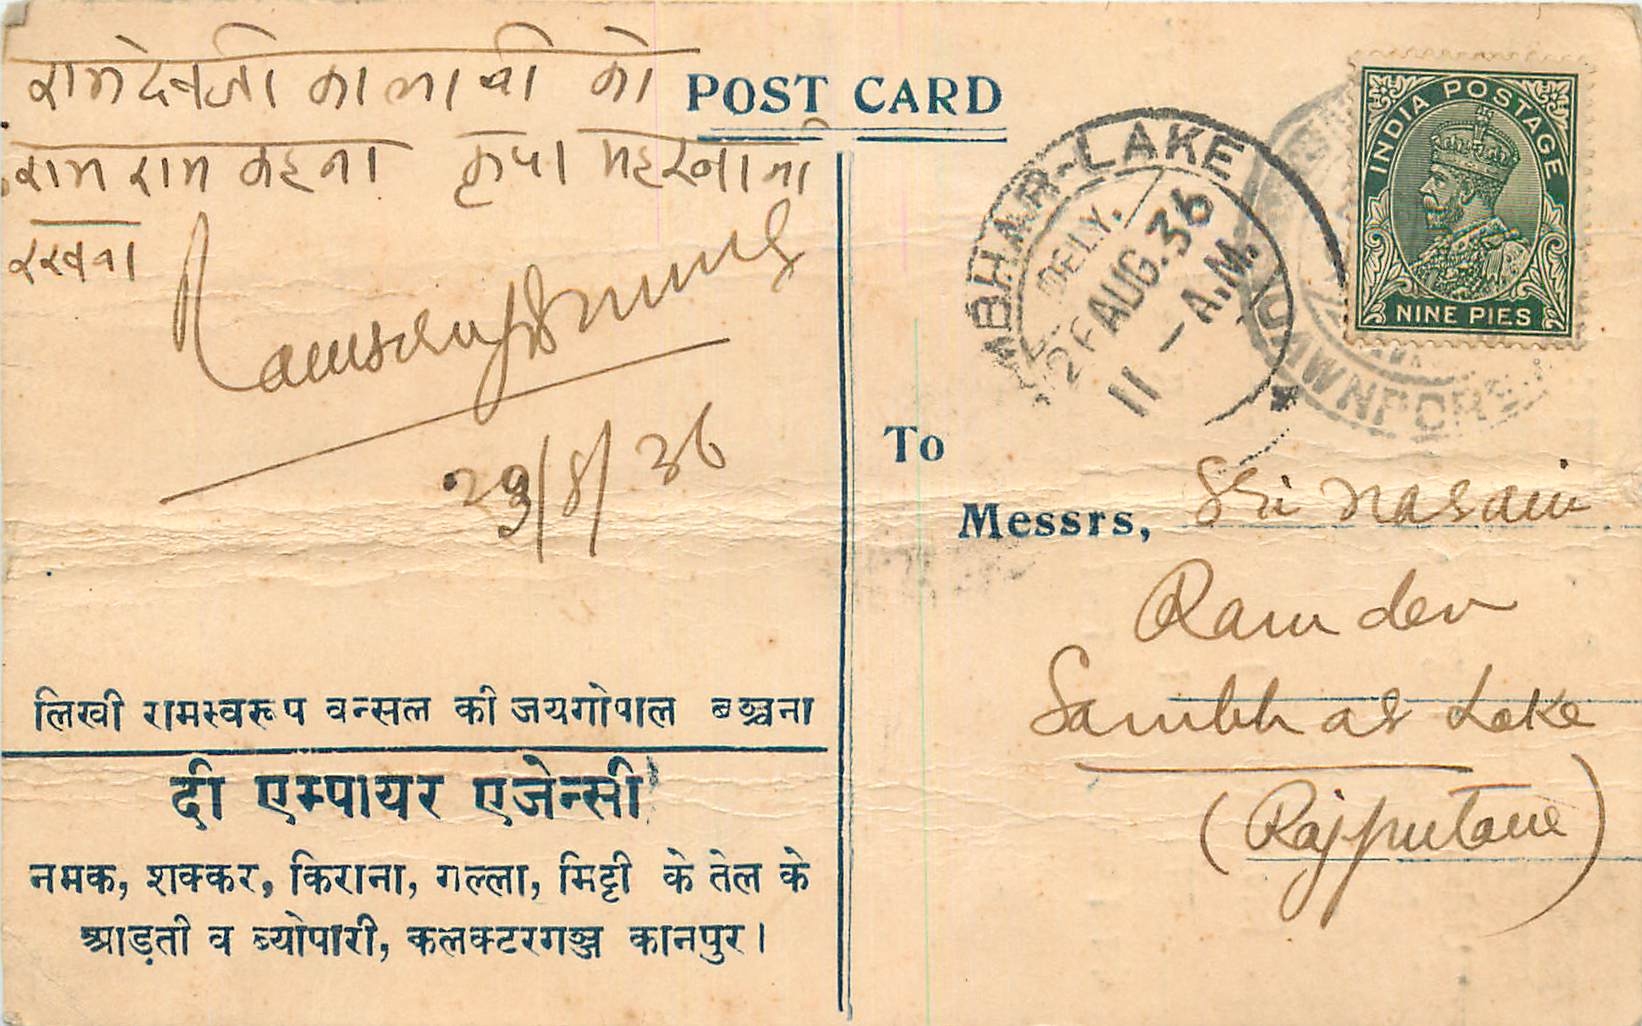 रामदेवजी कालाची को
राम राम कहना कृपा महरबानी
रखना
23/8/36
लिखी रामस्वरूप वन्सल की जयगोपाल बञ्चना
दी एम्पायर एजेन्सी
नमक, शक्कर, किराना, गल्ला, मिट्टी के तेल के
आड़ती व ब्योपारी, कलक्टरगञ्ज कानपुर।
POST CARD
INDIA POSTAGE
NINE PIES
SAMBHAR-LAKE
DELY.
26 AUG. 36
11 - A.M.
CAWNPORE
To
Messrs, Sri Narain
Ram dev
Sambhar Lake
(Rajputana)